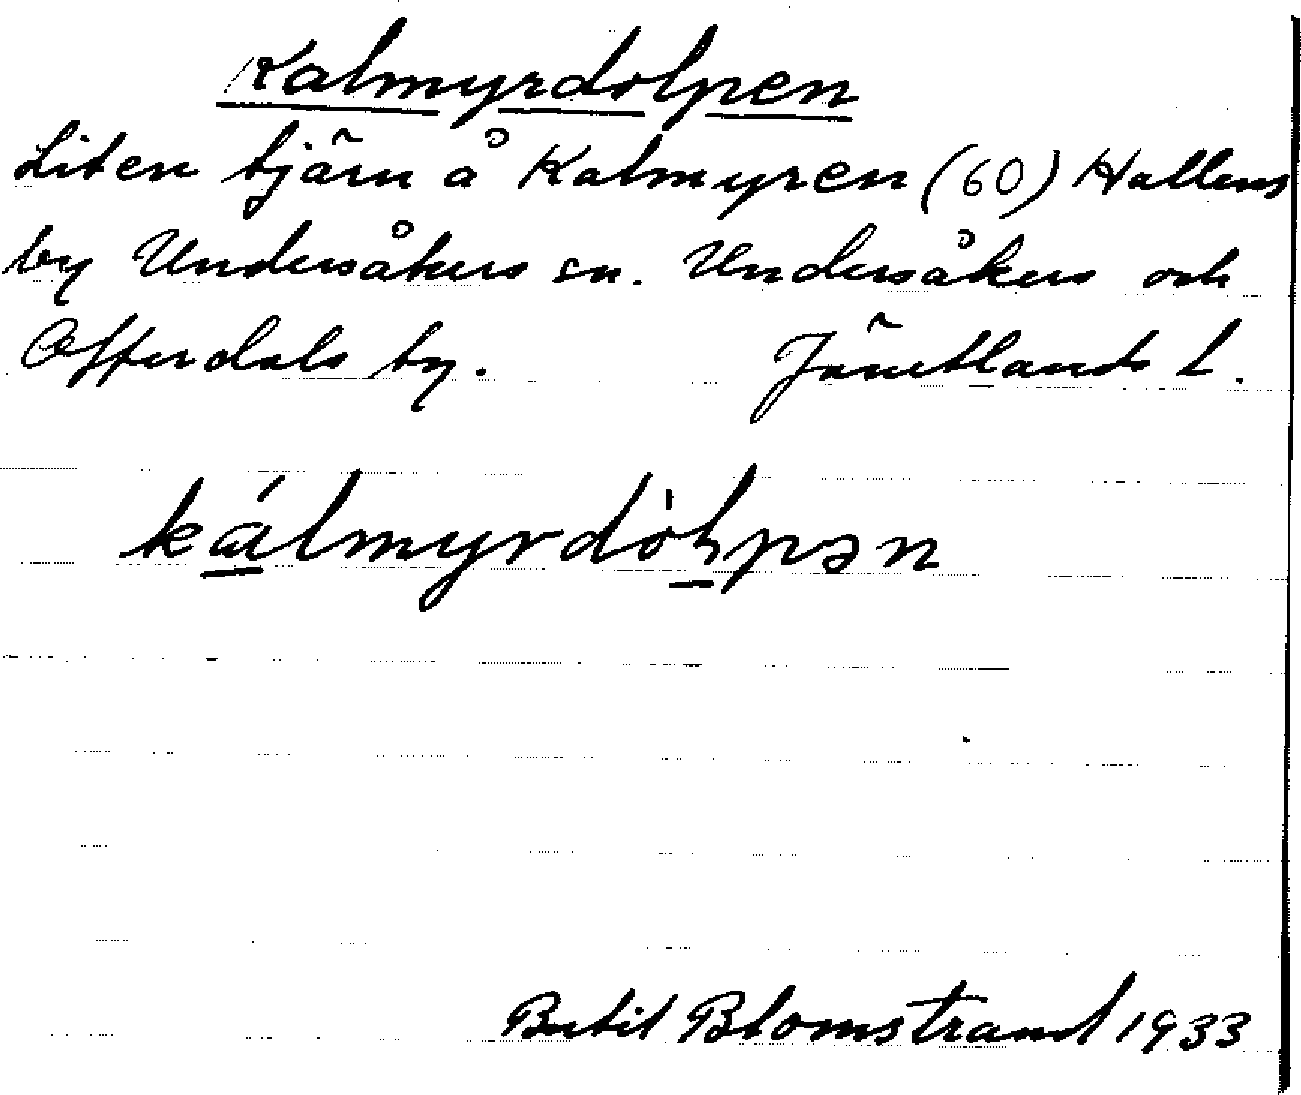 Kalmyrdolpen
Liten tjärn å Kalmyren (60) Hallens
by Undersåkers sn. Undersåkers och
Offerdals by. Jämtlands L.
kálmyrdòɧpən
Bertil Blomstrand 1933